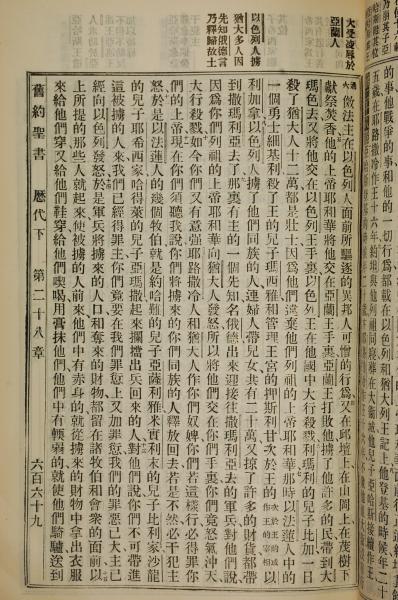 大受淩辱於
亞蘭人
以色列人擄
猶大多人因
先知俄德言
乃釋歸故土
獻祭焚香他的上帝耶和華將他交在亞蘭王手裏亞蘭王打敗他擄了他許多的民帶到大
瑪色去又將他交在以色列王手裏以色列王在他國中大行殺戮利瑪利的兒子比加一日
殺了猶大人十二萬都是壯士因爲他們遺棄他們列祖的上帝耶和華那時以法蓮人中的
一個勇士細基利殺了王的兒子瑪西雅和管理王宮的押斯利甘次於王的
利加拿以色列人擄了他們同族的人連婦人帶兒女共有二十萬又掠了許多的財貨都帶
到撒瑪利亞去了那裏有主的一個先知名俄德出來迎接往撒瑪利亞去的軍兵對他們說
因爲你們列祖的上帝耶和華向猶大人發怒所以將他們交在你們手裏你們竟怒氣沖天
大行殺戮如今你們又有意强耶路撒冷人和猶大人作你們奴婢你們若這樣行必得罪你
們的上帝現在你們須聽我說你們將擄來的你們同族的人釋放回去若是不然必干犯主
怒於是以法蓮人的幾個牧伯就是約哈難的兒子亞薩利雅米實利末的兒子比利家沙龍
的兒子耶希西家哈得萊的兒子亞瑪撒起來攔擋出兵回來的人對他們說你們不可帶進
這被擄的人來我們已經得罪主你們竟要在我們罪愆上又加罪愆我們的罪惡已大主已
經向以色列發怒於是軍兵將擄來的人口和奪來的財物都留在諸牧伯和會衆的面前以
上所提的那些人就起來使被擄的人前來他們中有赤身的就從擄來的財物中拿出衣服
來給他們穿又給他們鞋穿給他們喫喝用膏抹他們他們中有輭弱的就使他們騎驢送到
舊約聖書 歷代下 第二十八章 六百六十九